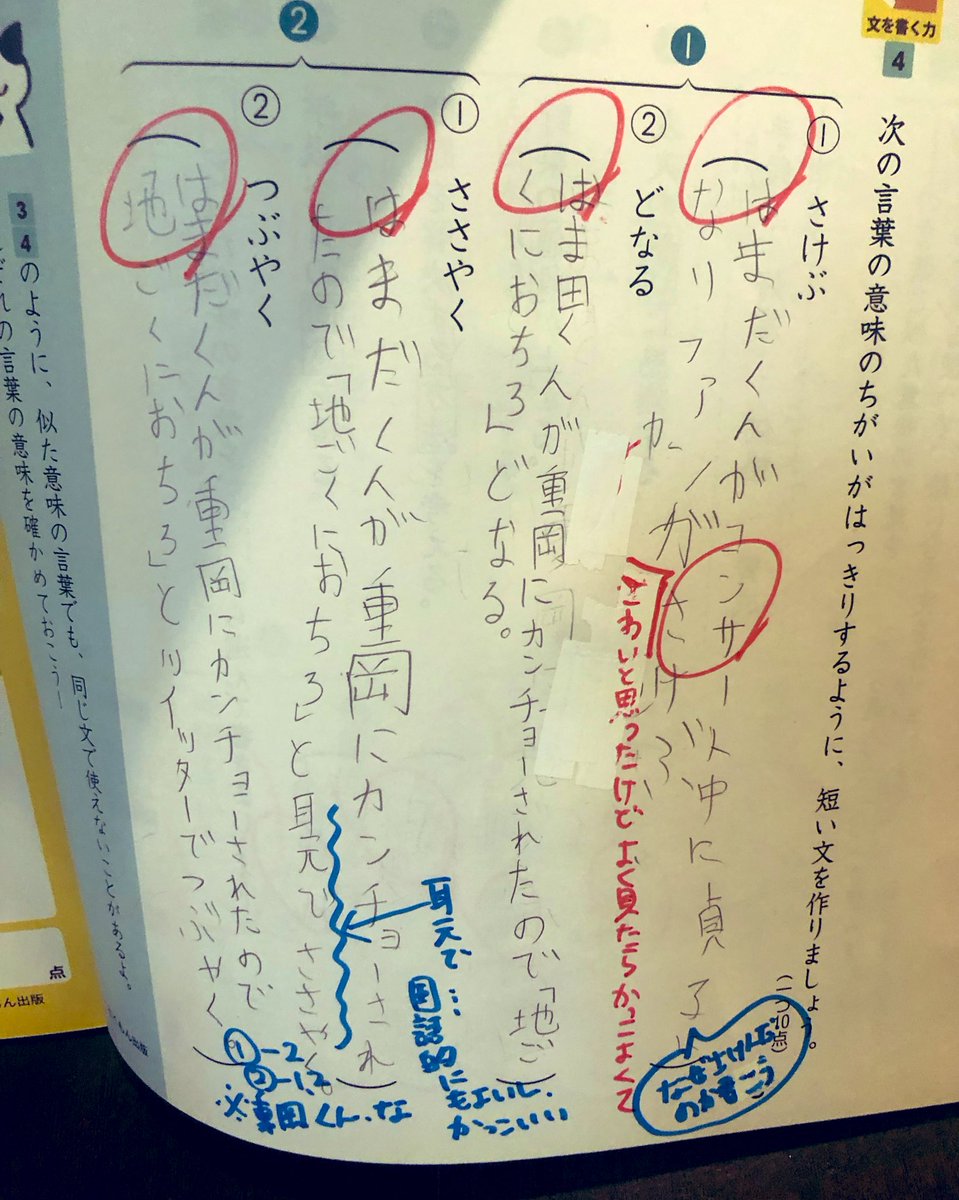 文を書く力
4
次の言葉の意味のちがいがはっきりするように、短い文を作りましょう。
(一つ10点)
❶
① さけぶ
(はまだくんがコンサート中に貞子
なりファンがさけぶ)
こわいと思ったけどよく見たらかっこよくて
なぜさけんだ
のか書こう
② どなる
(はま田くんが重岡にカンチョーされたので「地ご
くにおちろ」どなる。)
❷
① ささやく
(はまだくんが重岡にカンチョーされ
たので「地ごくにおちろ」と耳元でささやく。)
耳元で…
国語的に
もよいし、
かっこいい
② つぶやく
(はまだくんが重岡にカンチョーされたので
「地ごくにおちろ」とツイッターでつぶやく。)
①-2
②-1,2
※重岡くん、な
3 4 のように、似た意味の言葉でも、同じ文で使えないことがあるよ。
の言葉の意味を確かめておこう！
点
もん出版